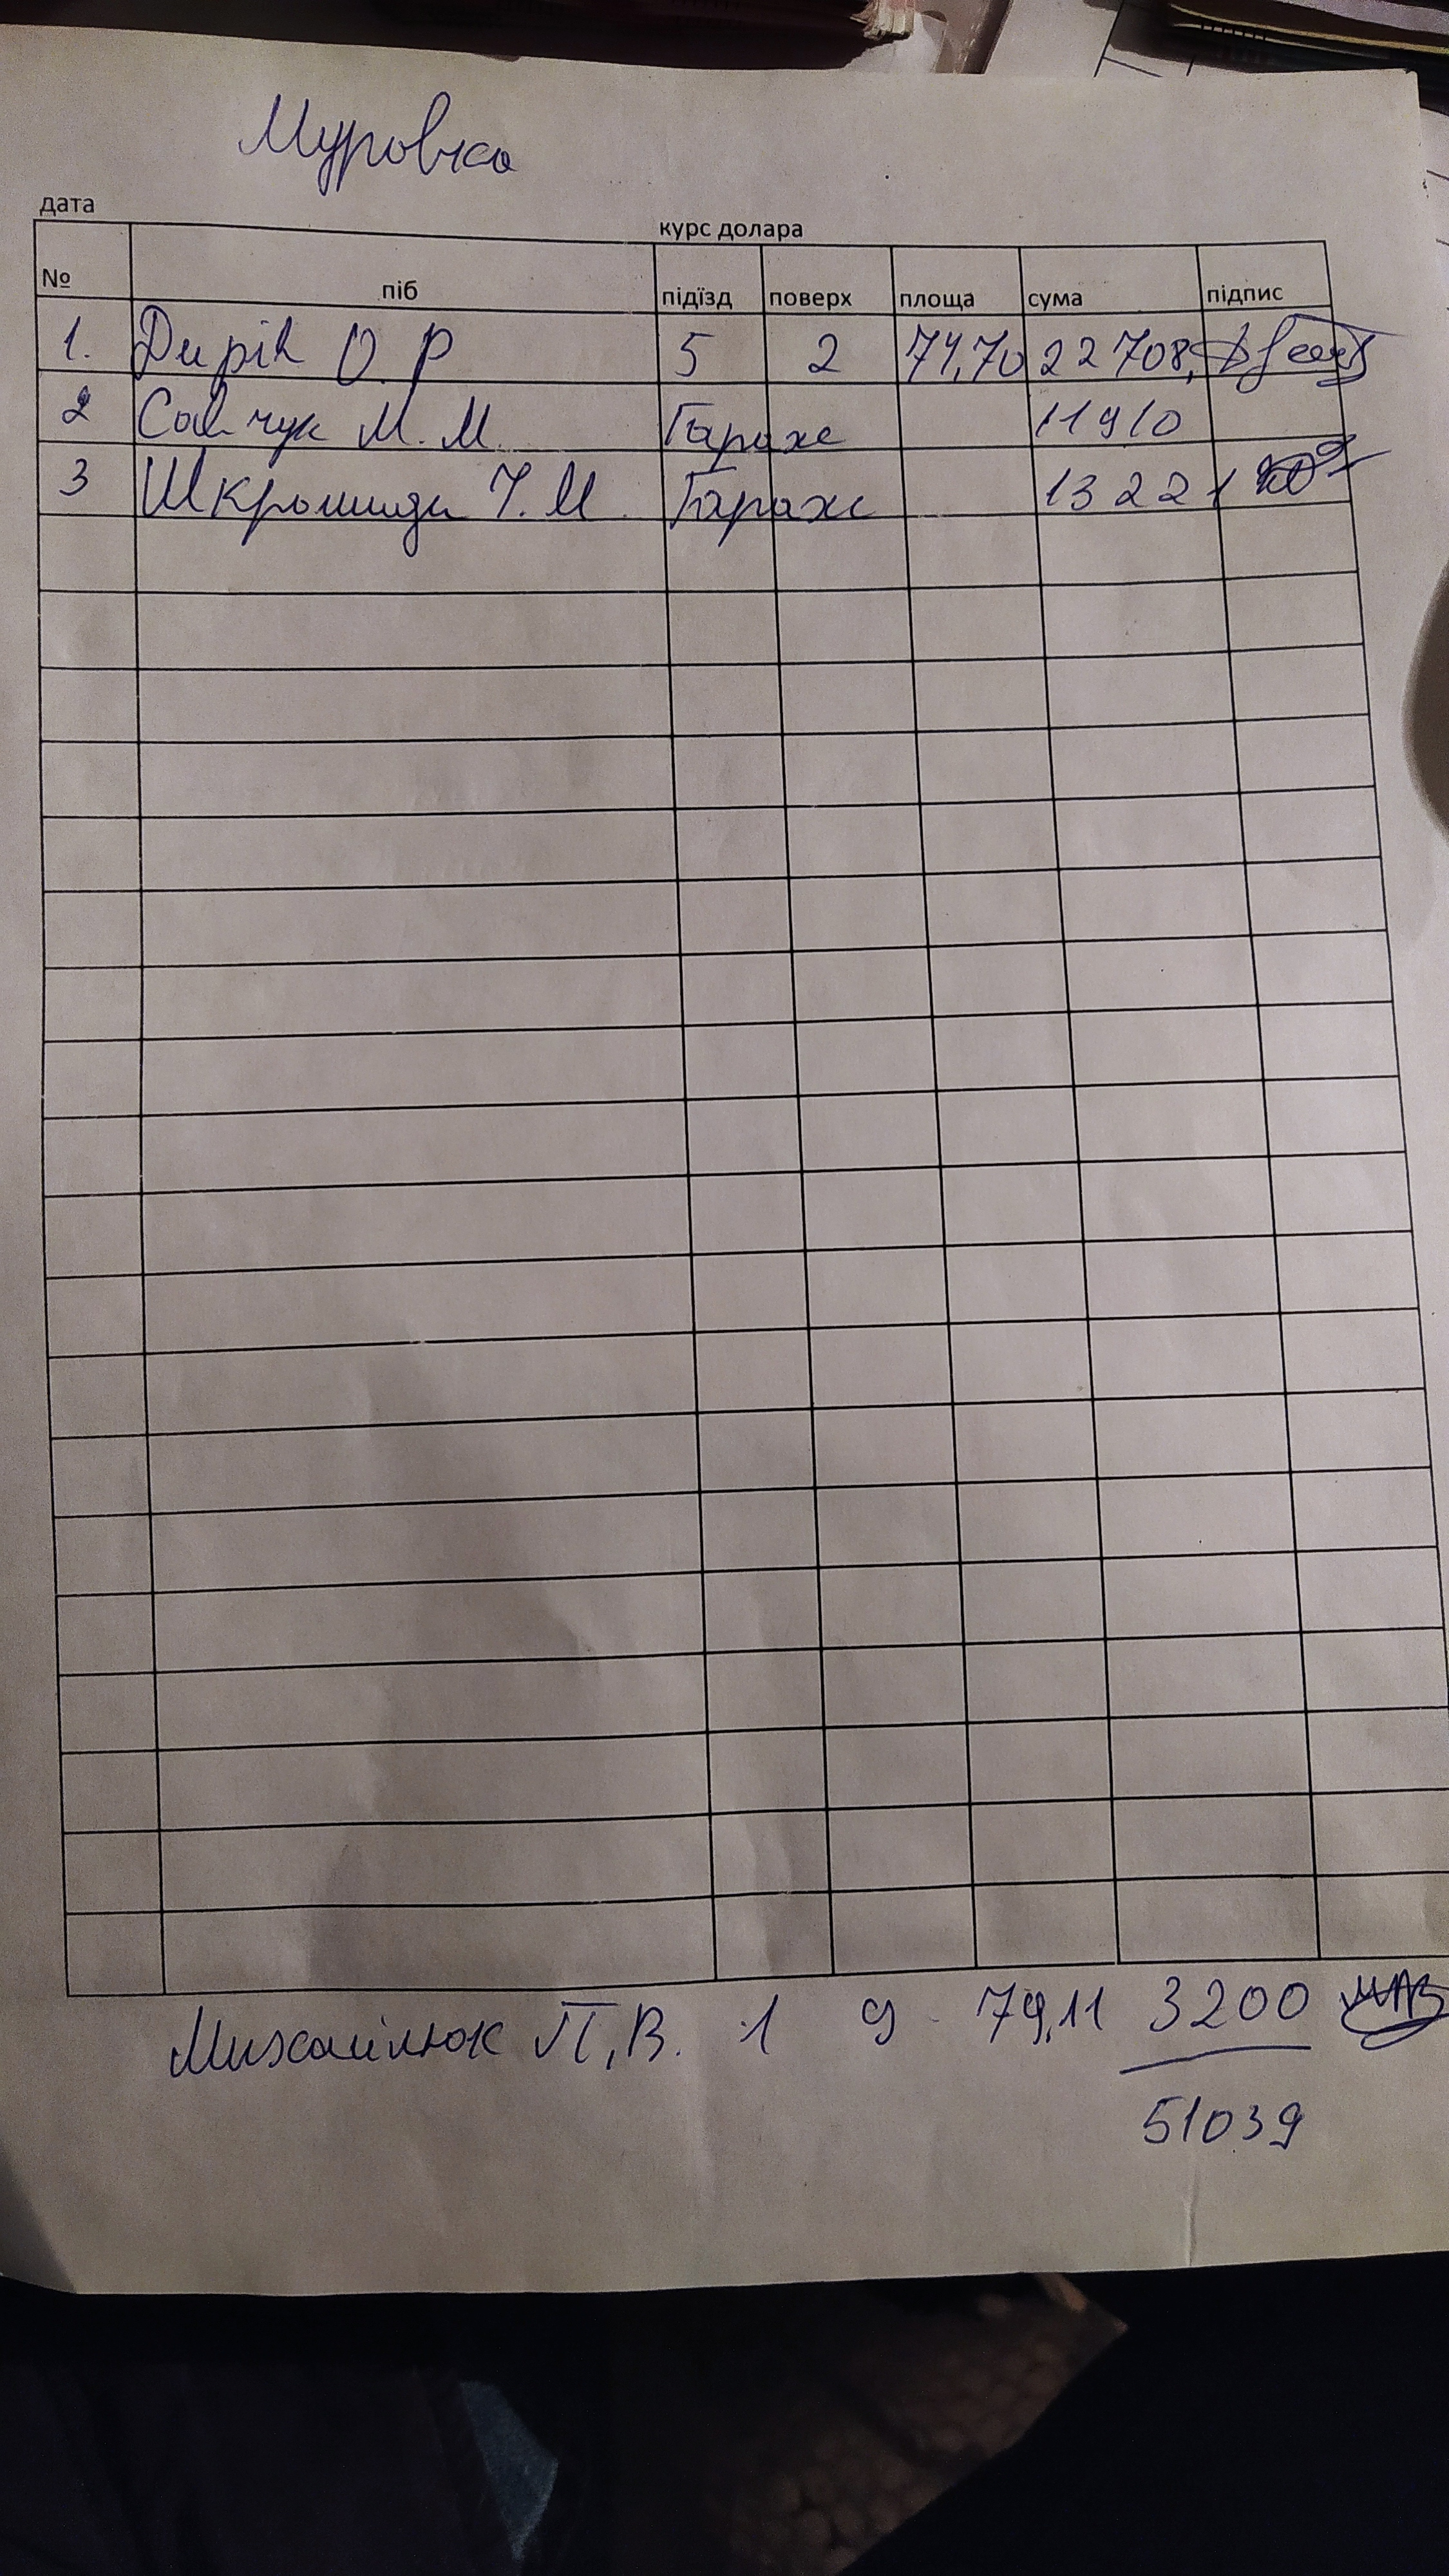 Муровчо
дата курс долара
№ піб підїзд поверх площа сума підпис
1. Дирів О Р 5 2 77,70 22708,
2 Савчук М. М. Гараж 11910
3 М. Гараж 13221
Михайлюк П, В. 1 9 79,11 3200
51039